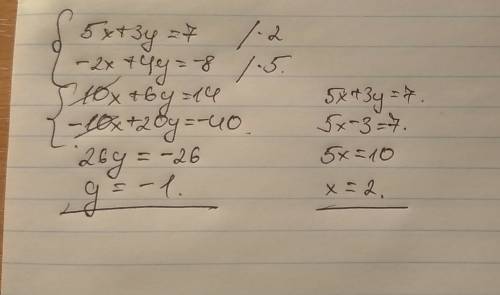 5x+3y=7 /·2
-2x+4y=-8 /·5.
10x+6y=14
-10x+20y=-40.
26y=-26
y=-1.
5x+3y=7.
5x-3=7.
5x=10
x=2.